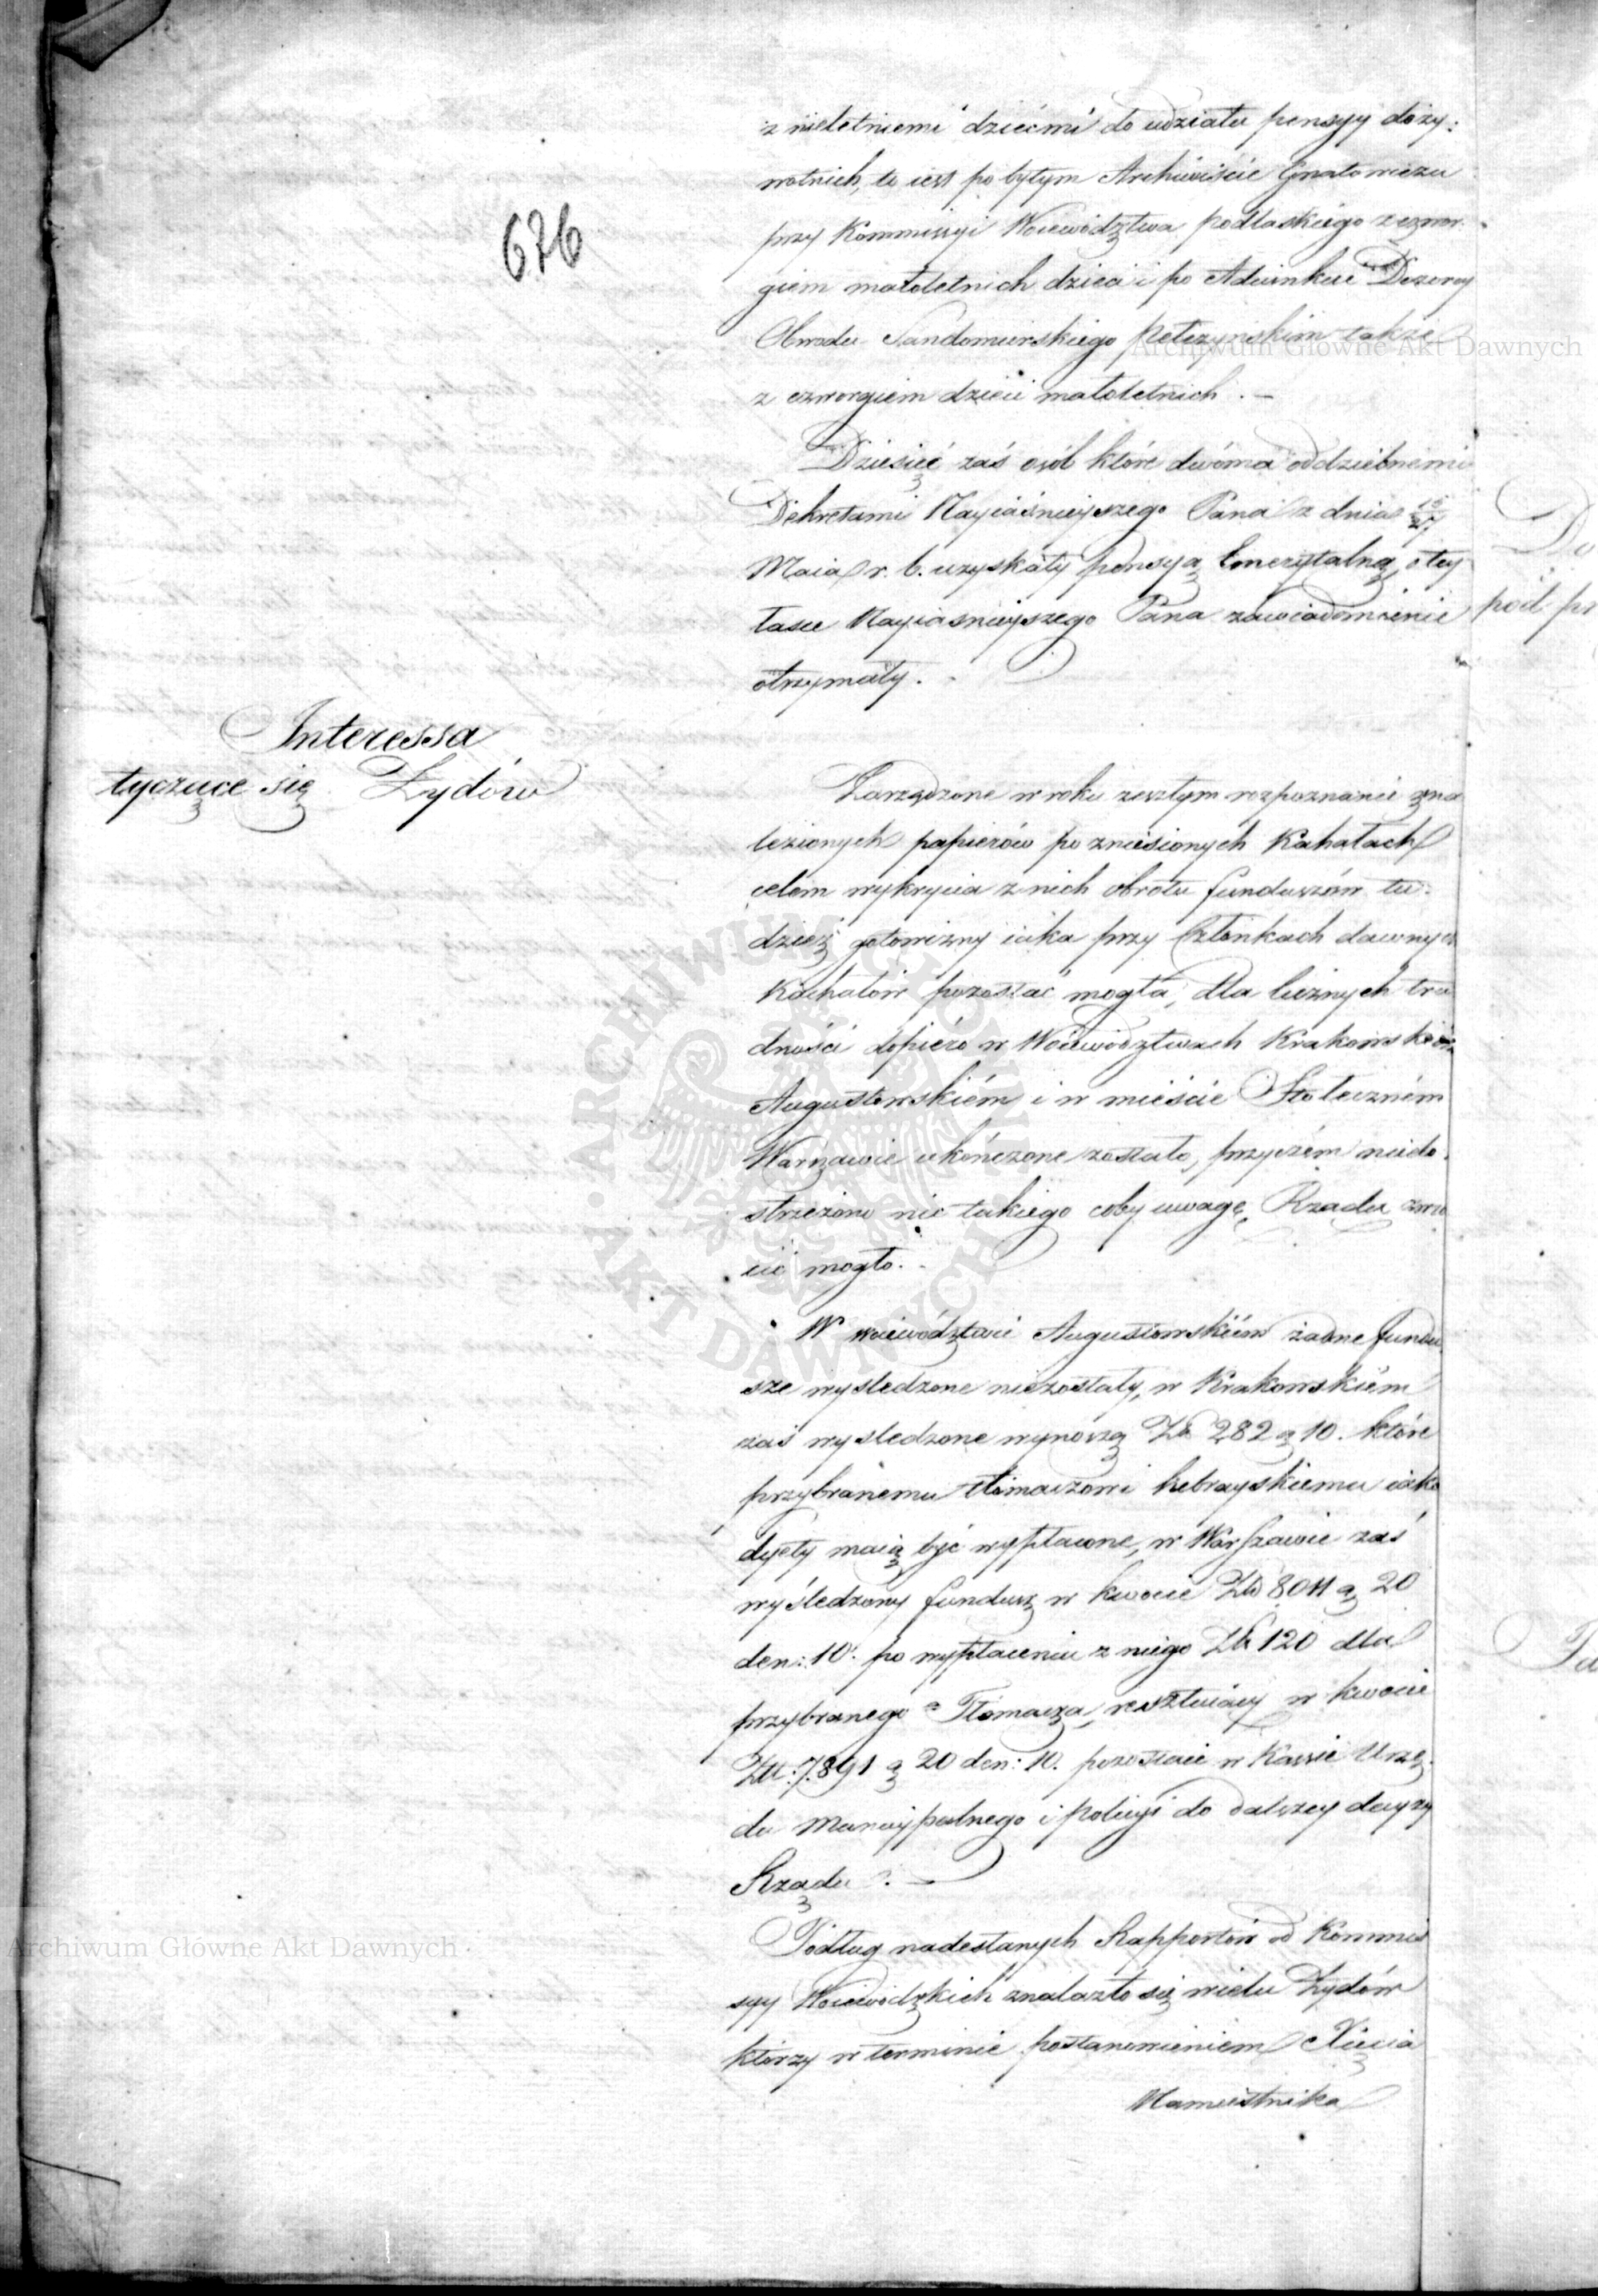 676
z nieletniemi dziećmi do udziału pensyy doży:
wotnich, to iest po byłym Archiwiście Gnatowiczu
przy Kommissyi Woiewództwa podlaskiego z czwor:
giem małoletnich dzieci i po Adiunkcie Dozorcy
Obwodu Sandomirskiego Pełczyńskim także
z czworgiem dzieci małoletnich. —
Dziesięć zaś osób które dwóma oddzielnemi
Dekretami Nayiaśnieyszego Pana z dnia 15/27
Maia r. b. uzyskały pensyą Emerytalną, o tey
łasce Nayiasnieyszego Pana zawiadomienie
otrzymały. -
Interessa
tyczące się Żydów
Zarządzone w roku zeszłym rozpoznanie zna
lezionych papierów po zniesionych Kahałach
celem wykrycia z nich obrotu funduszów tu:
dzież gotowizny iaka przy Członkach dawnych
Kachałów pozostać mogła, dla licznych tru
dności dopiéro w Woiewództwach Krakowskiém
Augustowskiém i w mieście Stołeczném
Warszawie ukończone zostało, przyczém niedo:
strzeżono nic takiego coby uwagę Rządu zwró
cić mogło. -
W woiewództwie Augustowskiém żadne fundu
sze wyśledzone niezostały, w Krakowskiém
zaś wyśledzone wynoszą Zł 282 g 10. które
przybranemu tłomaczowi hebrayskiemu iako
dyety maią być wypłacone, w Warszawie zaś
wyśledzony fundusz w kwocie Zł 8011 g 20
den: 10. po wypłaceniu z niego Zł 120 dla
przybranego Tłomacza, resztuiący w kwocie
Zł: 7891 g 20 den: 10. pozostaie w Kassie Urzę:
du Municypalnego i Policyi do dalszey decyzyi
Rządu. —
Podług nadesłanych Rapportów od Kommis
syy Woiewódzkich znalazło się wielu Żydów
którzy w terminie postanowieniem Xięcia
Namiestnika
Do
pod pr
Archiwum Główne Akt Dawnych
ARCHIWUM GŁÓWNE AKT DAWNYCH
Archiwum Główne Akt Dawnych